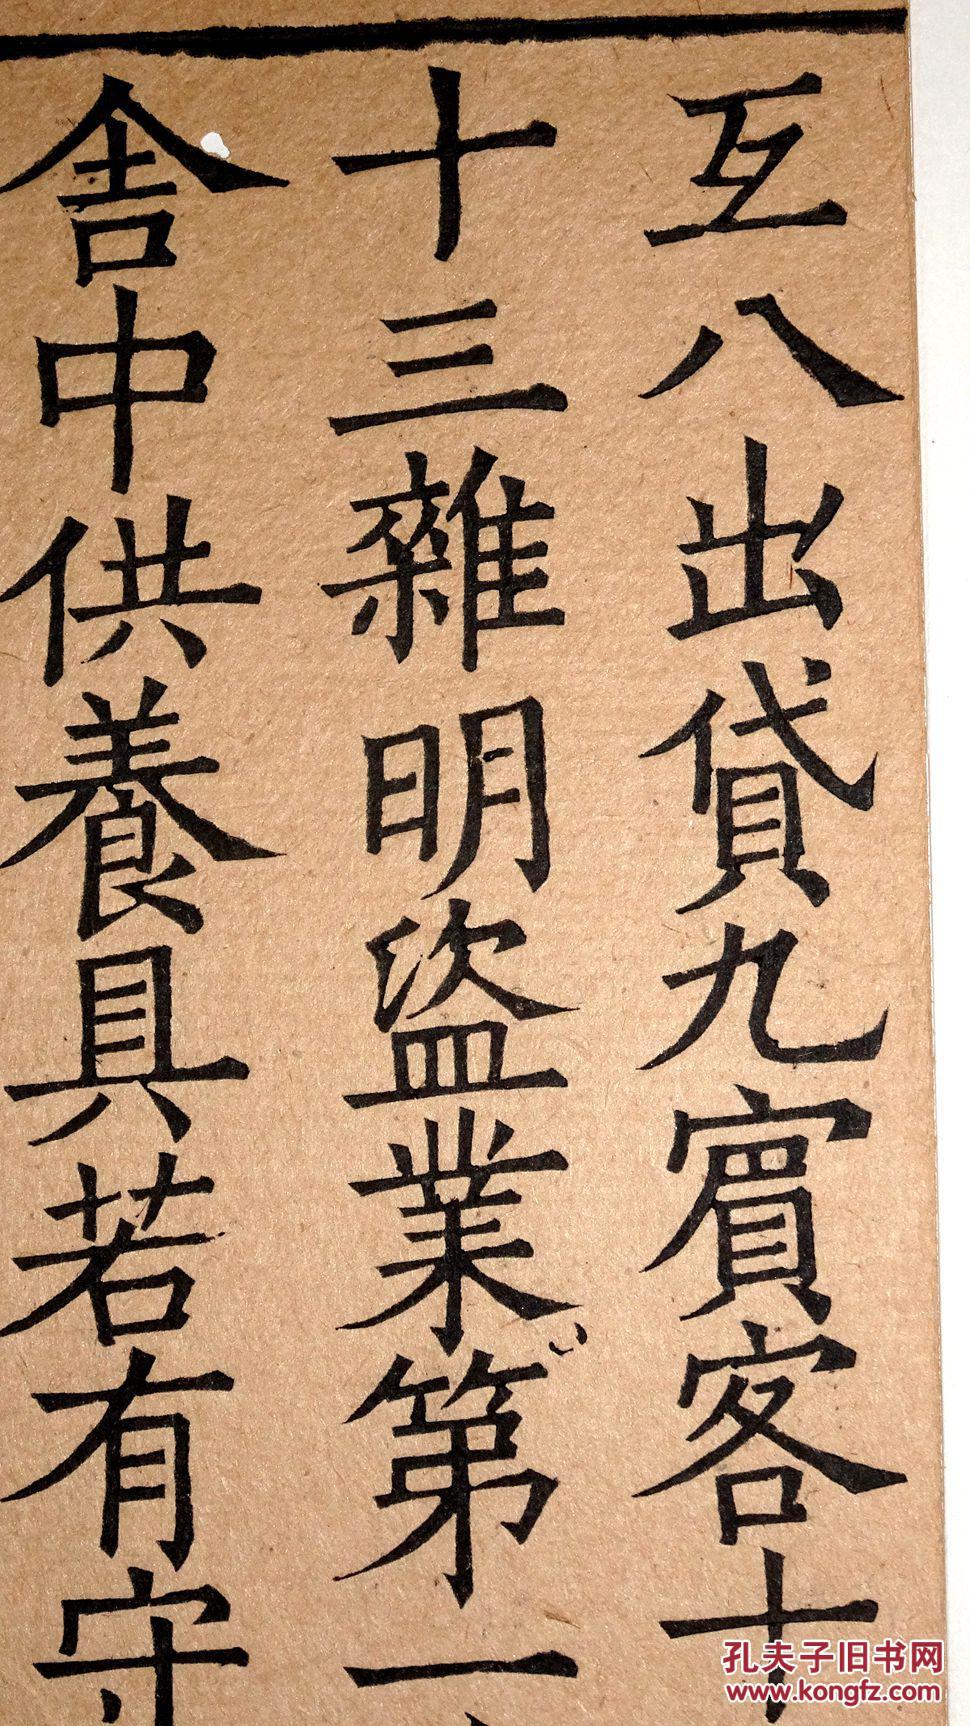 互八出貸九賔客十
十三雜明盜業第一
舍中供養具若有守
孔夫子旧书网
www.kongfz.com